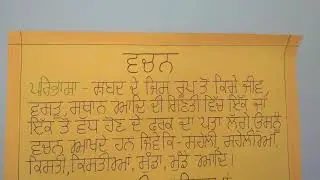 ਵਚਨ
ਪਰਿਭਾਸ਼ਾ - ਸ਼ਬਦ ਦੇ ਜਿਸ ਰੂਪ ਤੋਂ ਕਿਸੇ ਜੀਵ,
ਵਸਤੂ, ਸਥਾਨ ਆਦਿ ਦੀ ਗਿਣਤੀ ਵਿੱਚ ਇੱਕ ਜਾਂ
ਇੱਕ ਤੋਂ ਵੱਧ ਹੋਣ ਦੇ ਫ਼ਰਕ ਦਾ ਪਤਾ ਲੱਗੇ ਉਸਨੂੰ
ਵਚਨ ਆਖਦੇ ਹਨ ਜਿਵੇਂ ਕਿ- ਸਹੇਲੀ, ਸਹੇਲੀਆਂ,
ਕਿਸ਼ਤੀ, ਕਿਸ਼ਤੀਆਂ, ਮੁੰਡਾ, ਮੁੰਡੇ ਆਦਿ।